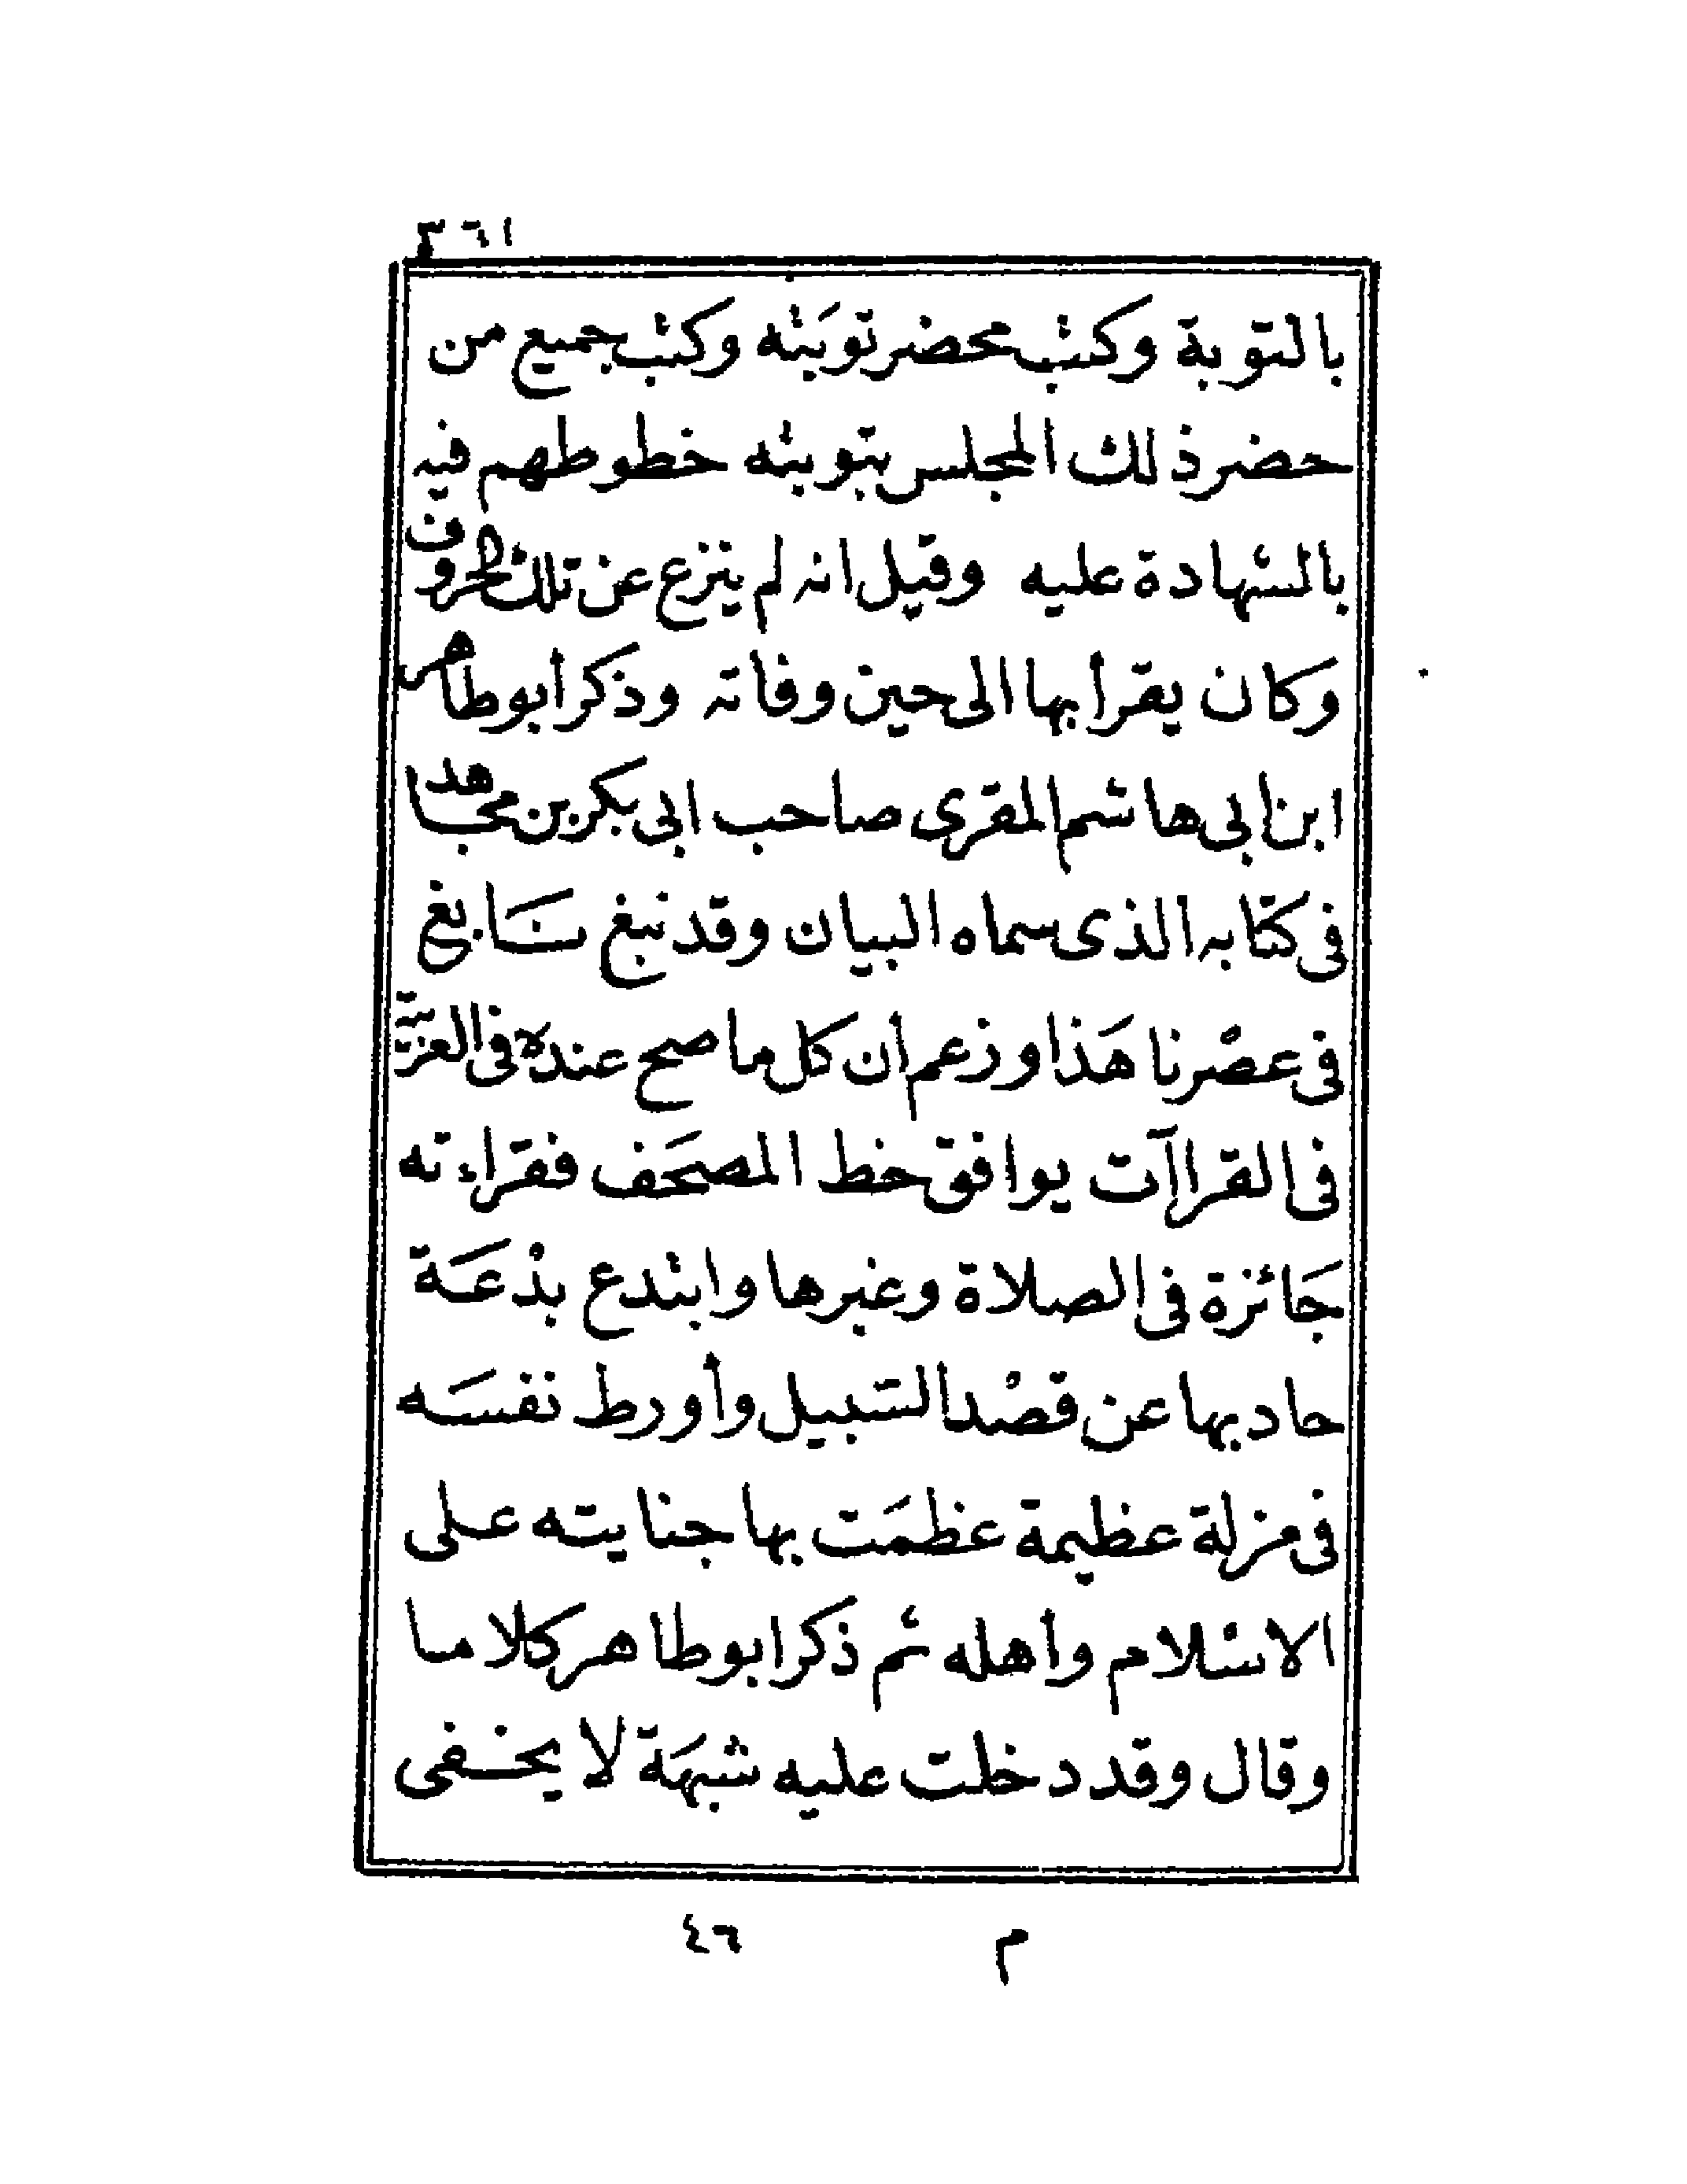 ٣٦١
بالتوبة وكتب محضر توبَته وكتب جميع من
حضر ذلك المجلس بتوبته خطوطهم فيه
بالشهادة عليه وقيل انه لم ينزع عن تلك الحروف
وكان يقرأ بها الى حين وفاته وذكر أبو طاهر
ابن ابى هاشم المقرى صاحب ابى بكر بن مجاهد
فى كتابه الذى سماه البيان وقد نبغ نَابغ
فى عصْرنا هَذا وزعم أن كل ما صح عنده فى العربية
فى القراآت يوافق خط المصحَف فقراءته
جَائزة فى الصلاة وغيرها وابتدع بدْعَة
حاد بها عن قصْد السَبيل وأورط نفسَه
فى مزلة عظيمة عظمَت بها جنايته على
الاسلام وأهله ثم ذكر ابو طاهر كلاما
وقال وقد دخلت عليه شبهَة لا يخفى
م ٤٦